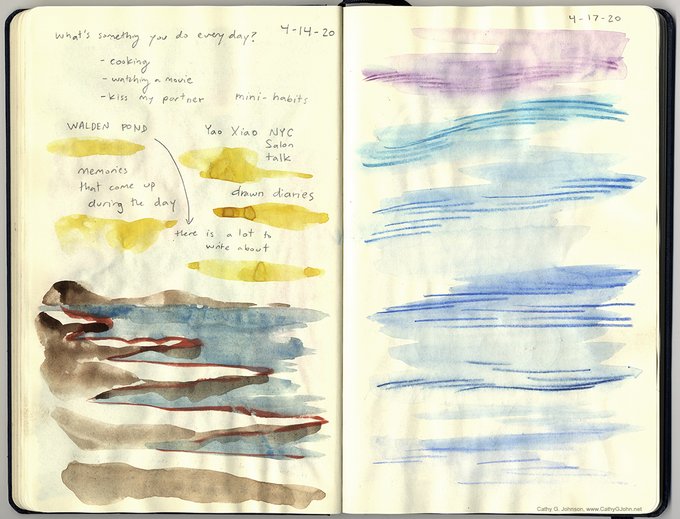 what's somethng you do every day?
4-14-20
- cooking
- watching a movie
- kiss my partner
mini-habits
WALDEN POND
memories
that come up
during the day
Yao Xiao NYC
Salon
talk
drawn diaries
there is a lot to
write about
4-17-20
Cathy G. Johnson, www.CathyGJohn.net